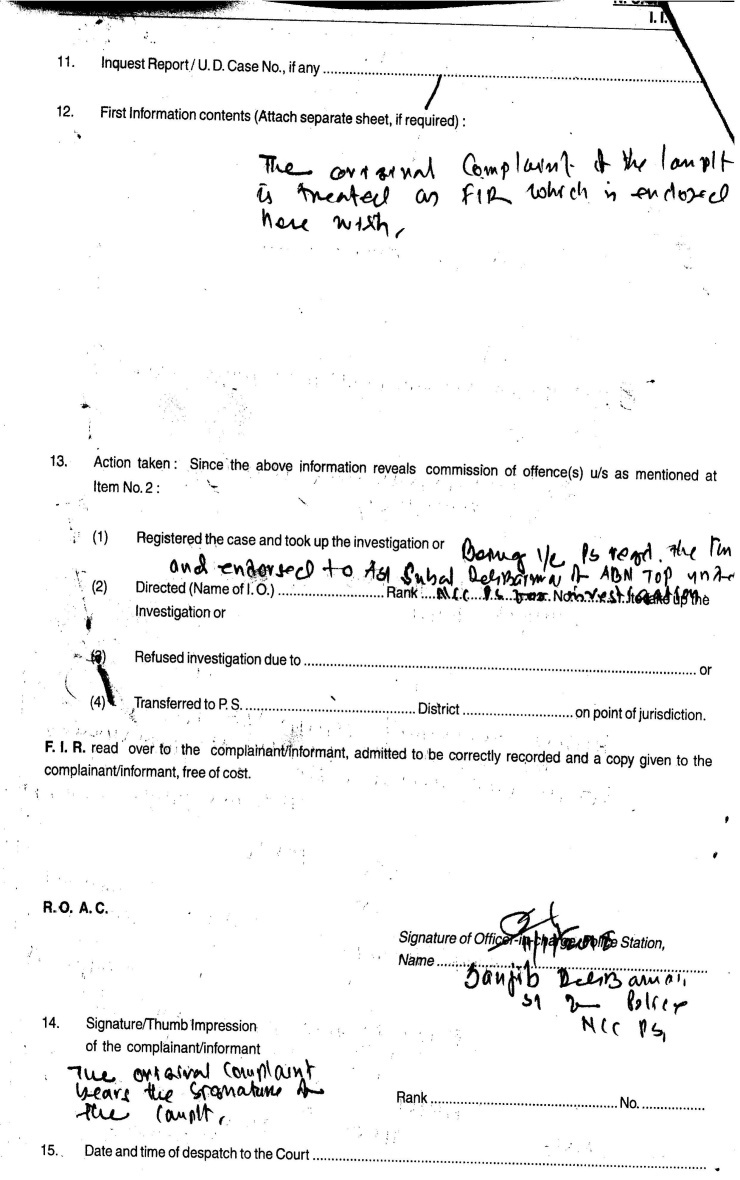 I. I.
11. Inquest Report / U. D. Case No., if any ..........
12. First Information contents (Attach separate sheet, if required) :
The original Complaint of the Complt
is treated as FIR which is enclosed
here with,
13. Action taken : Since the above information reveals commission of offence(s) u/s as mentioned at
Item No. 2 :
(1) Registered the case and took up the investigation or Being I/c PS regd. the
and endorsed to ASI Subal DebBarma of ABN TOP under
(2) Directed (Name of I. O.) .......... Rank .... NCC P.S. for No. investigation take up the
Investigation or
(3) Refused investigation due to .......... or
(4) Transferred to P. S. .......... District .......... on point of jurisdiction.
F. I. R. read over to the complainant/informant, admitted to be correctly recorded and a copy given to the
complainant/informant, free of cost.
R. O. A. C.
Signature of Officer-in-charge, Police Station,
Name ..........
Sanjib DebBarma,
SI of Police
NCC PS,
14. Signature/Thumb Impression
of the complainant/informant
The original Complaint
bears the signature of
the Complt,
Rank .......... No. ..........
15. Date and time of despatch to the Court ..........